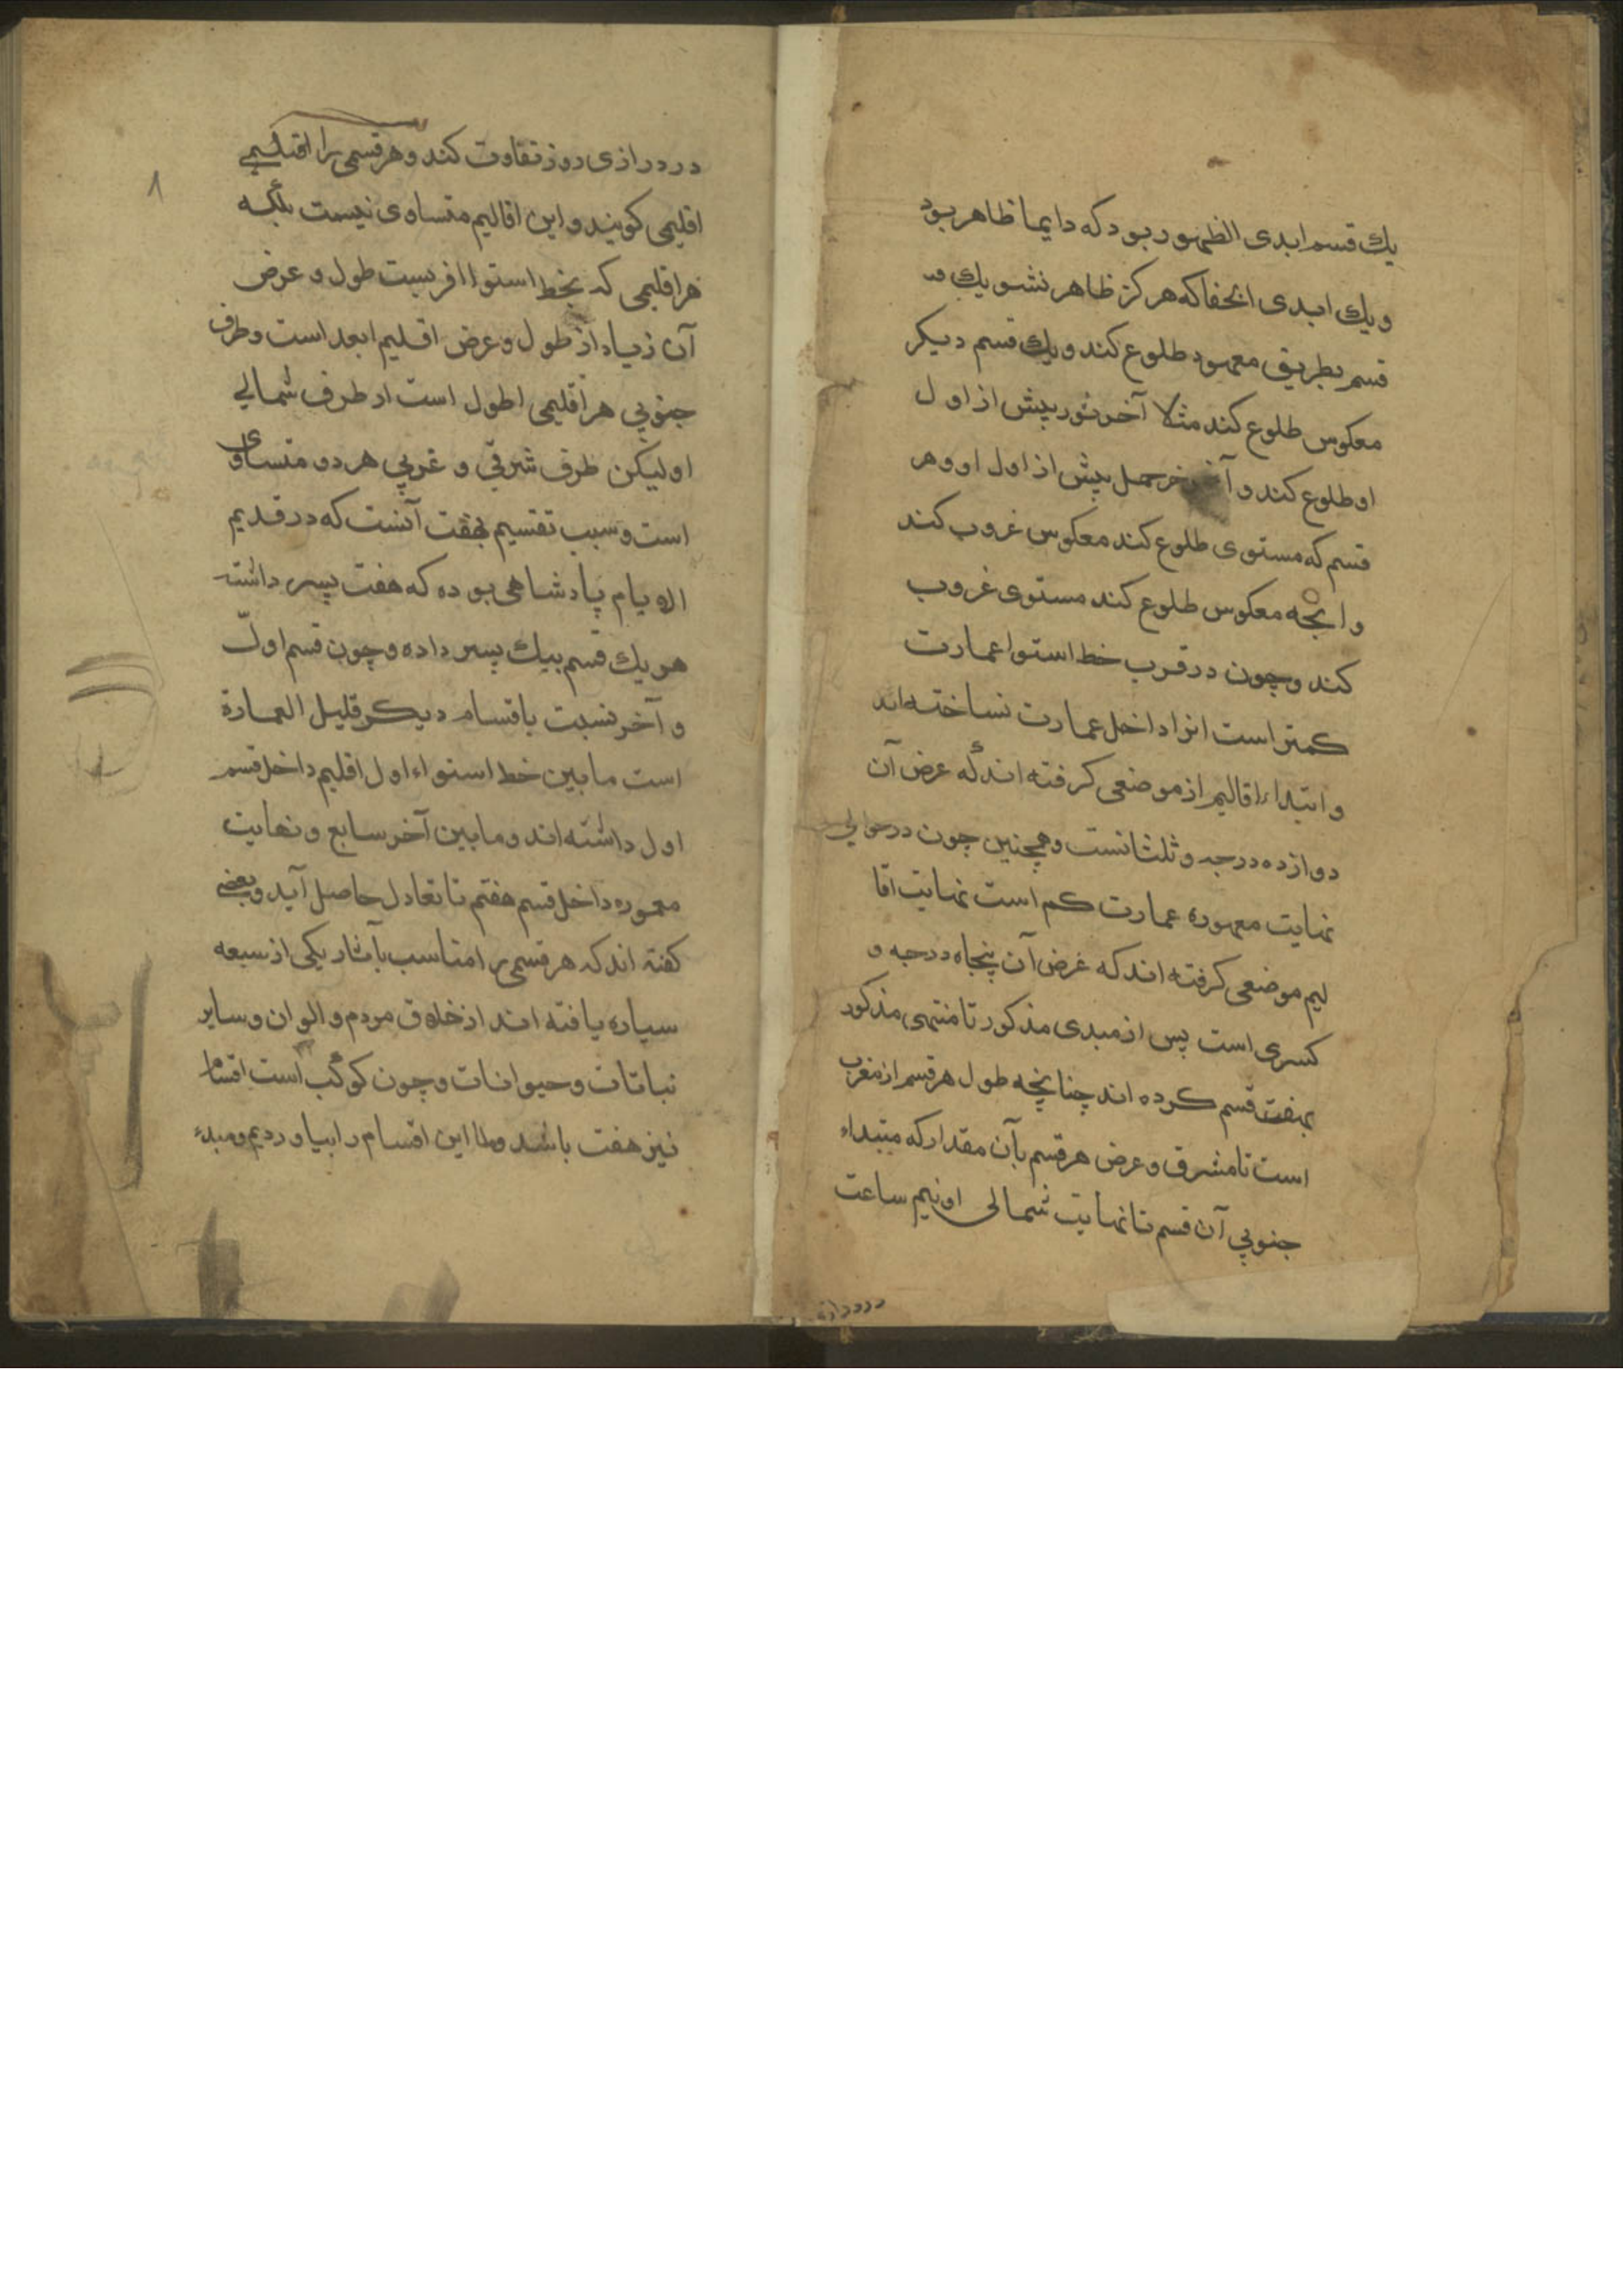 يك قسم ابدى الظهور بود كه دايما ظاهر بود
و يك ابدى الخفا كه هركز ظاهر نشو يك قسـ
قسم بطريق معهود طلوع كند و يك قسم ديكر
معكوس طلوع كند مثلا آخر ثور پيش از اول
او طلوع كند و آخر حمل پيش از اول او و هر
قسم كه مستوى طلوع كند معكوس غروب كند
و انچه معكوس طلوع كند مستوى غروب
كند و چون در قرب خط استوا عمارت
كمتر است انرا داخل عمارت نساخته اند
و ابتداء اقاليم از موضعى كرفته اند كه عرض آن
دوازده درجه و ثلثانست و همچنين چون در حوالى
نهايت معموره عمارت كم است نهايت اقا
ليم موضعى كرفته اند كه غرض آن پنجاه درجه و
كسرى است پس از مبدى مذكور تا منتهى مذكور
بهفت قسم كرده اند چنانچه طول هر قسم از مغرب
است تا مشرق و عرض هر قسم بآن مقدار كه مبتداء
جنوبي آن قسم تا نهايت شمالى او نيم ساعت
در درازى
در درازى روز تفاوت كند و هر قسمى را اقليمي
اقليمى كويند و اين اقاليم متساوى نيست بلكه
هر اقليمى كه بخط استوا اقربست طول و عرض
آن زياد از طول و عرض اقليم ابعد است و طرف
جنوبي هر اقليمى اطول است از طرف شمالي
او ليكن طرف شرقي و غربي هر دو متساوى
است و سبب تقسيم بهفت آنست كه در قديم
الايام پادشاهى بوده كه هفت پسر داشته
هر يك قسم بيك پسر داده و چون قسم اول
و آخر نسبت باقسام ديكر قليل العمارة
است ما بين خط استواء اول اقليم داخل قسم
اول داشته اند و ما بين آخر سابع و نهايت
معموره داخل قسم هفتم تا تعادل حاصل آيد و بعضى
كفته اند كه هر قسمى را مناسب بآثار يكى از سبعه
سياره يافته اند از خلاق مردم و الوان و ساير
نباتات و حيوانات و چون كوكب است اقسام
نيز هفت باشد و ما اين اقسام را بياورديم و مبدء
٨